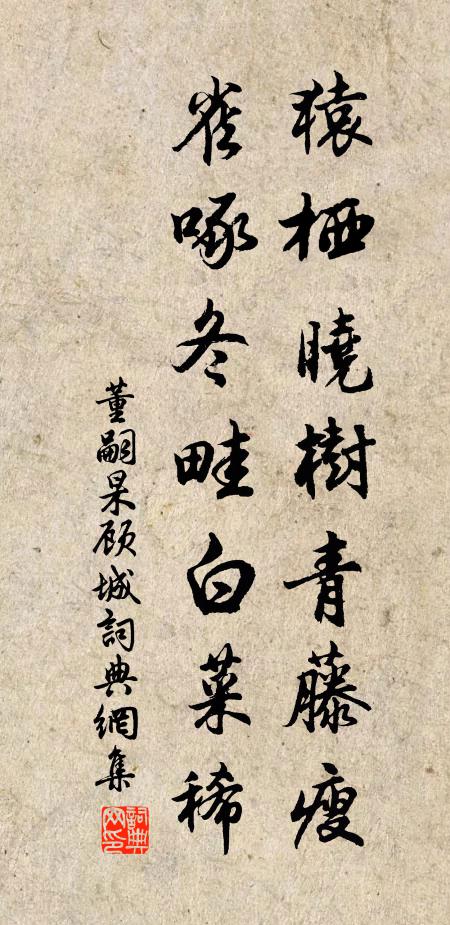 猿栖曉樹青藤瘦
雀啄冬畦白菜稀
董嗣杲顾城詞典網集
詞典網印